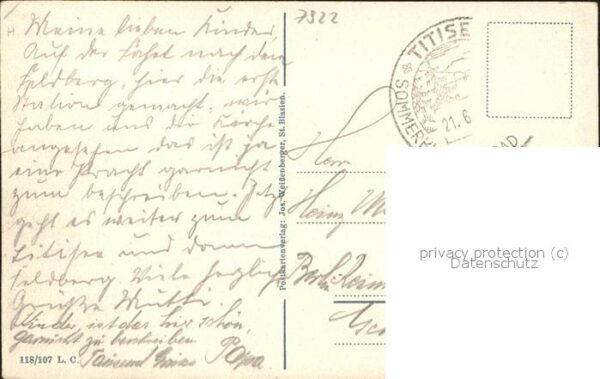 7322
Meine lieben Kinder,
Auf der Fahrt nach dem
Feldberg, hier die erste
Station gemacht, wir
haben uns die Kirche
angesehen das ist ja
eine Pracht garnicht
zum beschreiben. Jetzt
geht es weiter zum
Titisee und dann
Feldberg. Viele herzliche
Grüße Mutti.
Kinder, ist das hier schön,
garnicht zu beschreiben
Tausend Papa
118/107 L. C.
Postkartenverlag: Jos. Weißenberger, St. Blasien.
TITISE
SOMMER
21.6
BAD
Herrn
Heinz
Berlin
privacy protection (c)
Datenschutz